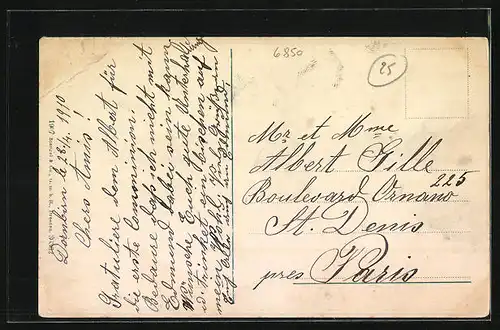 6850
25
Dornbirn le 28/4. 1910
Chers Amis!
Gratuliere dem Albert für
die erste Comonimion.
Bedaure daß ich nicht mit
Edmund dabei sein kann
Wünsche Euch gute Unterhaltung
u. trinket ein bischen auf
mein Wohl.
Mr et Mme
Albert Gille
Boulevard Ornano 225
St. Denis
pres Paris